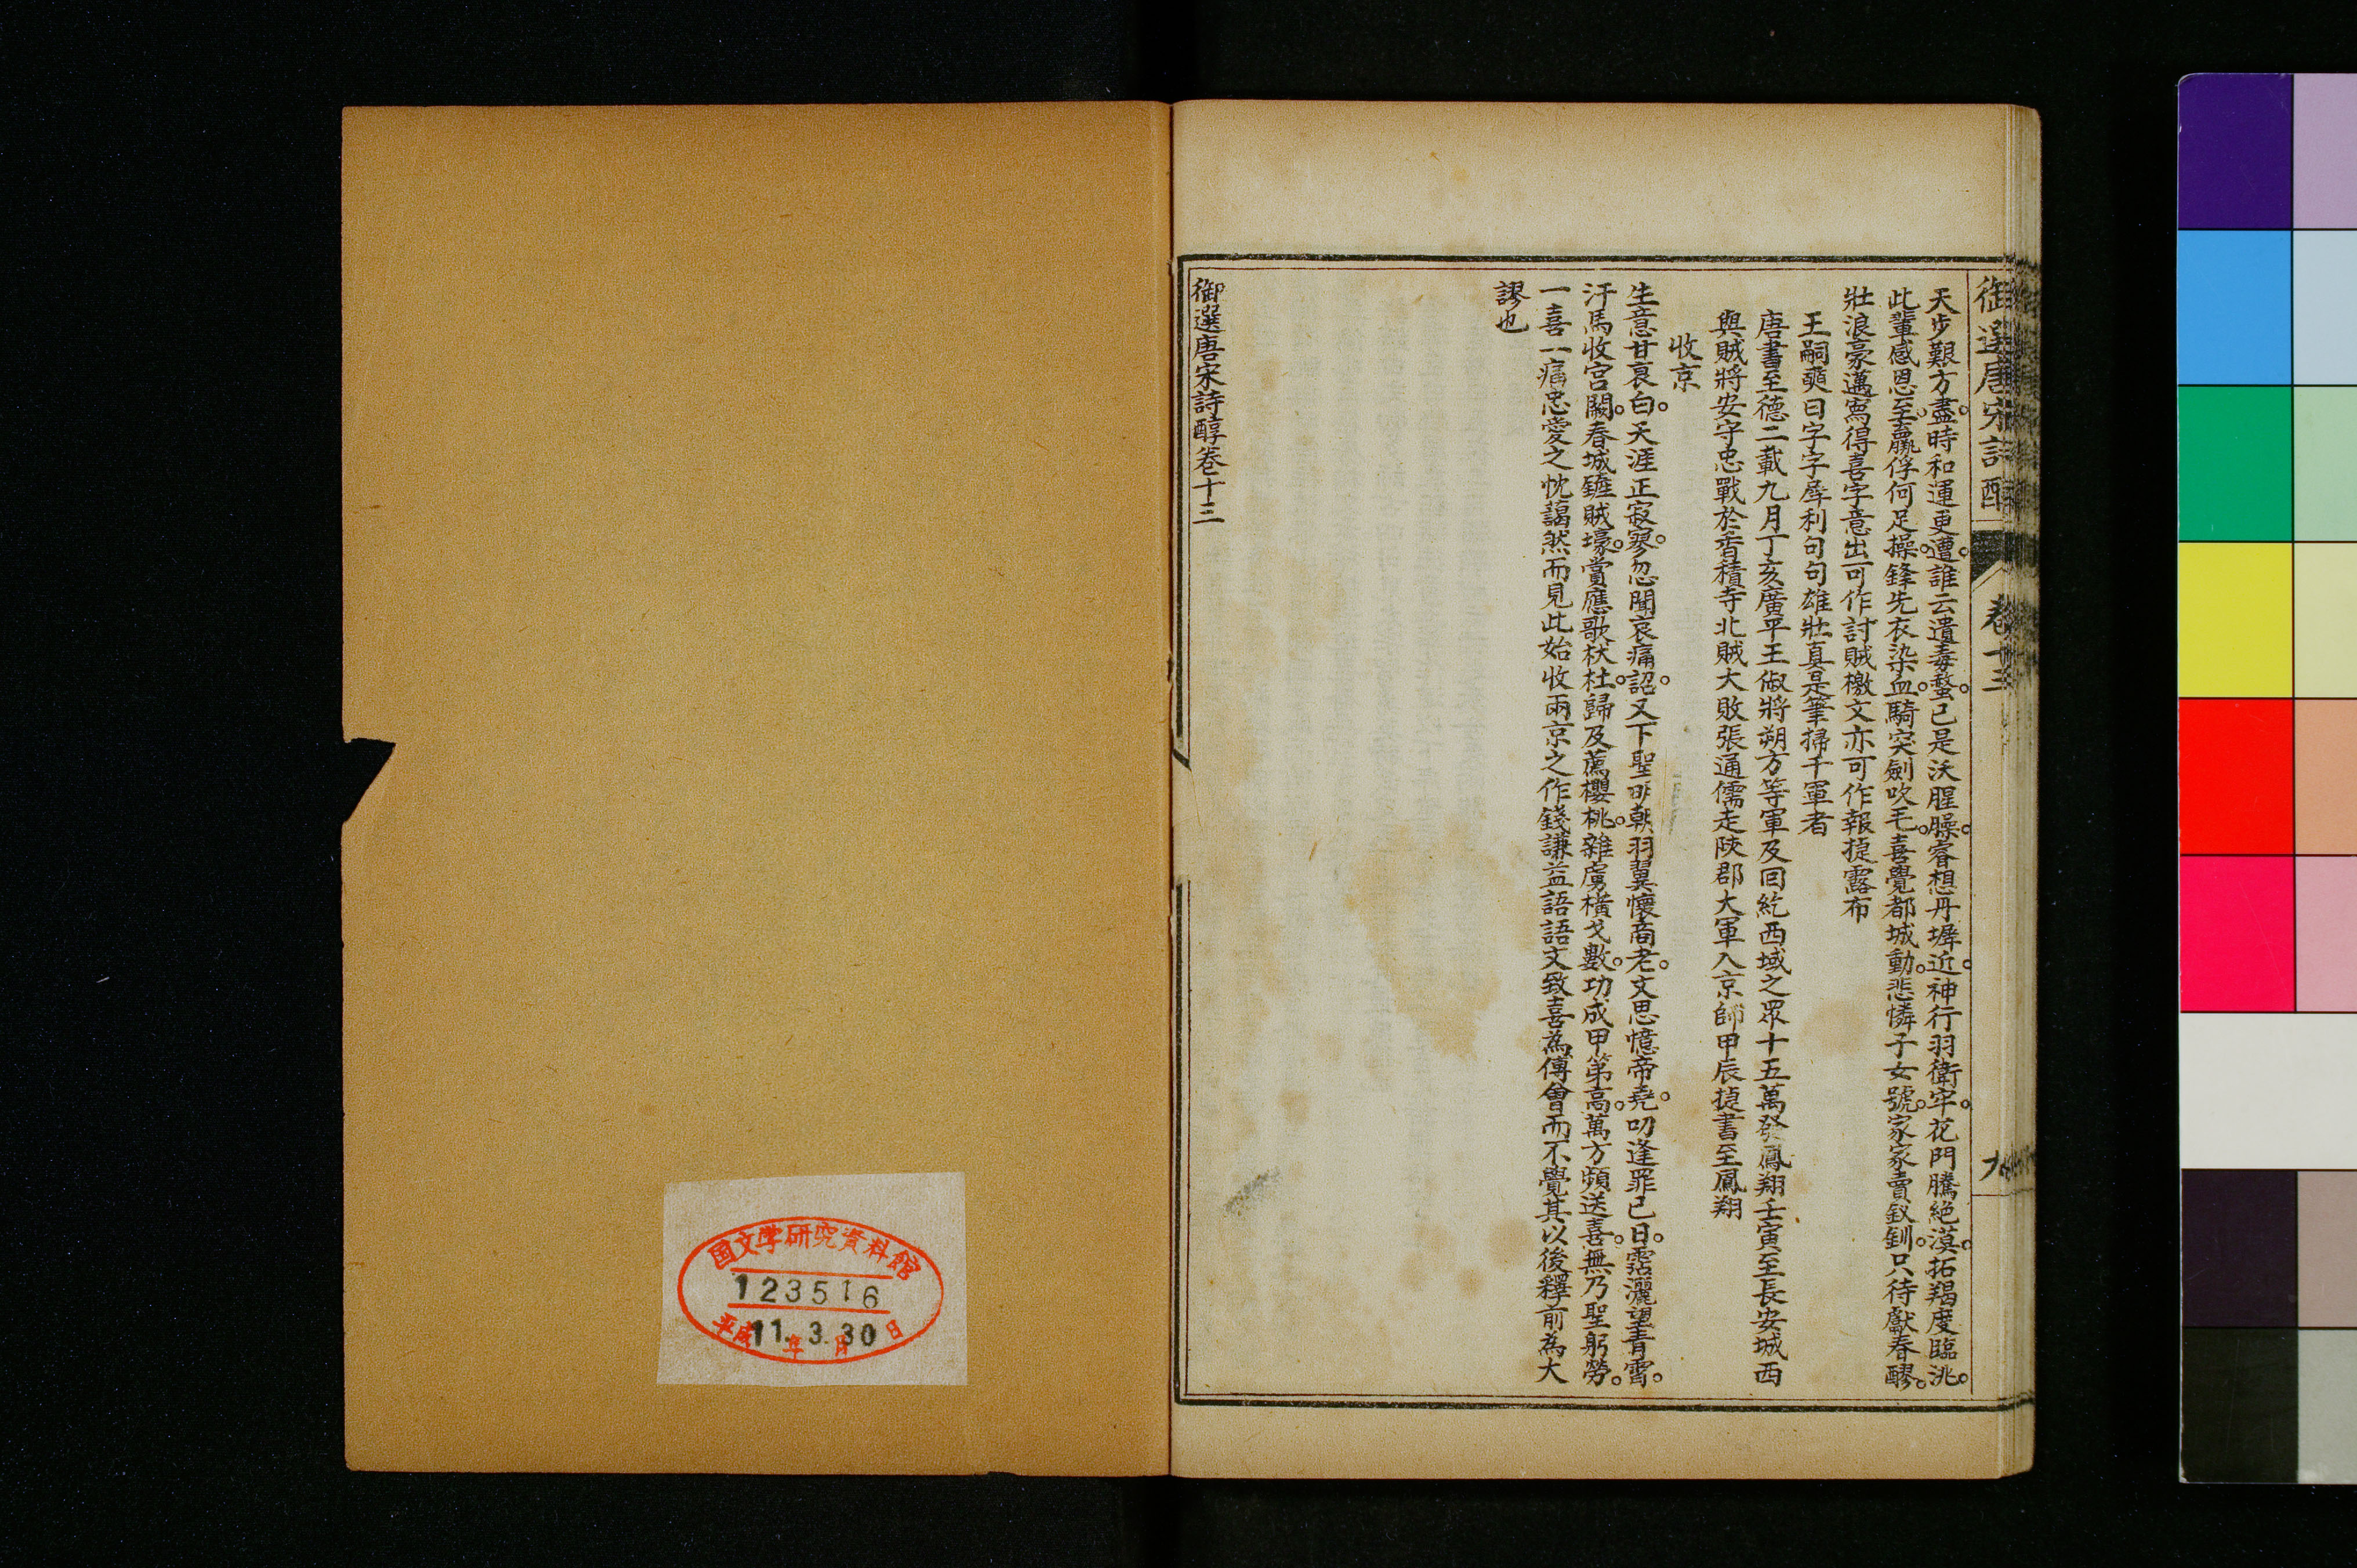 御選唐宋詩醇
卷十三
九
天步艱方盡。時和運更遭。誰云遺毒螫。已是沃腥臊。睿想丹墀近。神行羽衛牢。花門騰絕漠。拓羯度臨洮。
此輩感恩至。羸俘何足操。鋒先衣染血。騎突劍吹毛。喜覺都城動。悲憐子女號。家家賣釵釧。只待獻春醪。
壯浪豪邁寫得喜字意出可作討賊檄文亦可作報捷露布
王嗣奭曰字字犀利句句雄壯真是筆掃千軍者
唐書至德二載九月丁亥廣平王俶將朔方等軍及回紇西域之眾十五萬發鳳翔壬寅至長安城西
與賊將安守忠戰於香積寺北賊大敗張通儒走陝郡大軍入京師甲辰捷書至鳳翔
收京
生意甘衰白。天涯正寂寥。忽聞哀痛詔。又下聖明朝。羽翼懷商老。文思憶帝堯。叨逢罪已日。霑灑望青霄。
汗馬收宮闕。春城鏟賊壕。賞應歌杕杜。歸及薦櫻桃。雜虜橫戈數。功成甲第高。萬方頻送喜。無乃聖躬勞。
一喜一痛忠愛之忱藹然而見此始收兩京之作錢謙益語語文致喜為傅會而不覺其以後釋前為大
謬也
御選唐宋詩醇卷十三
国文学研究資料館
123516
平成11年3月30日